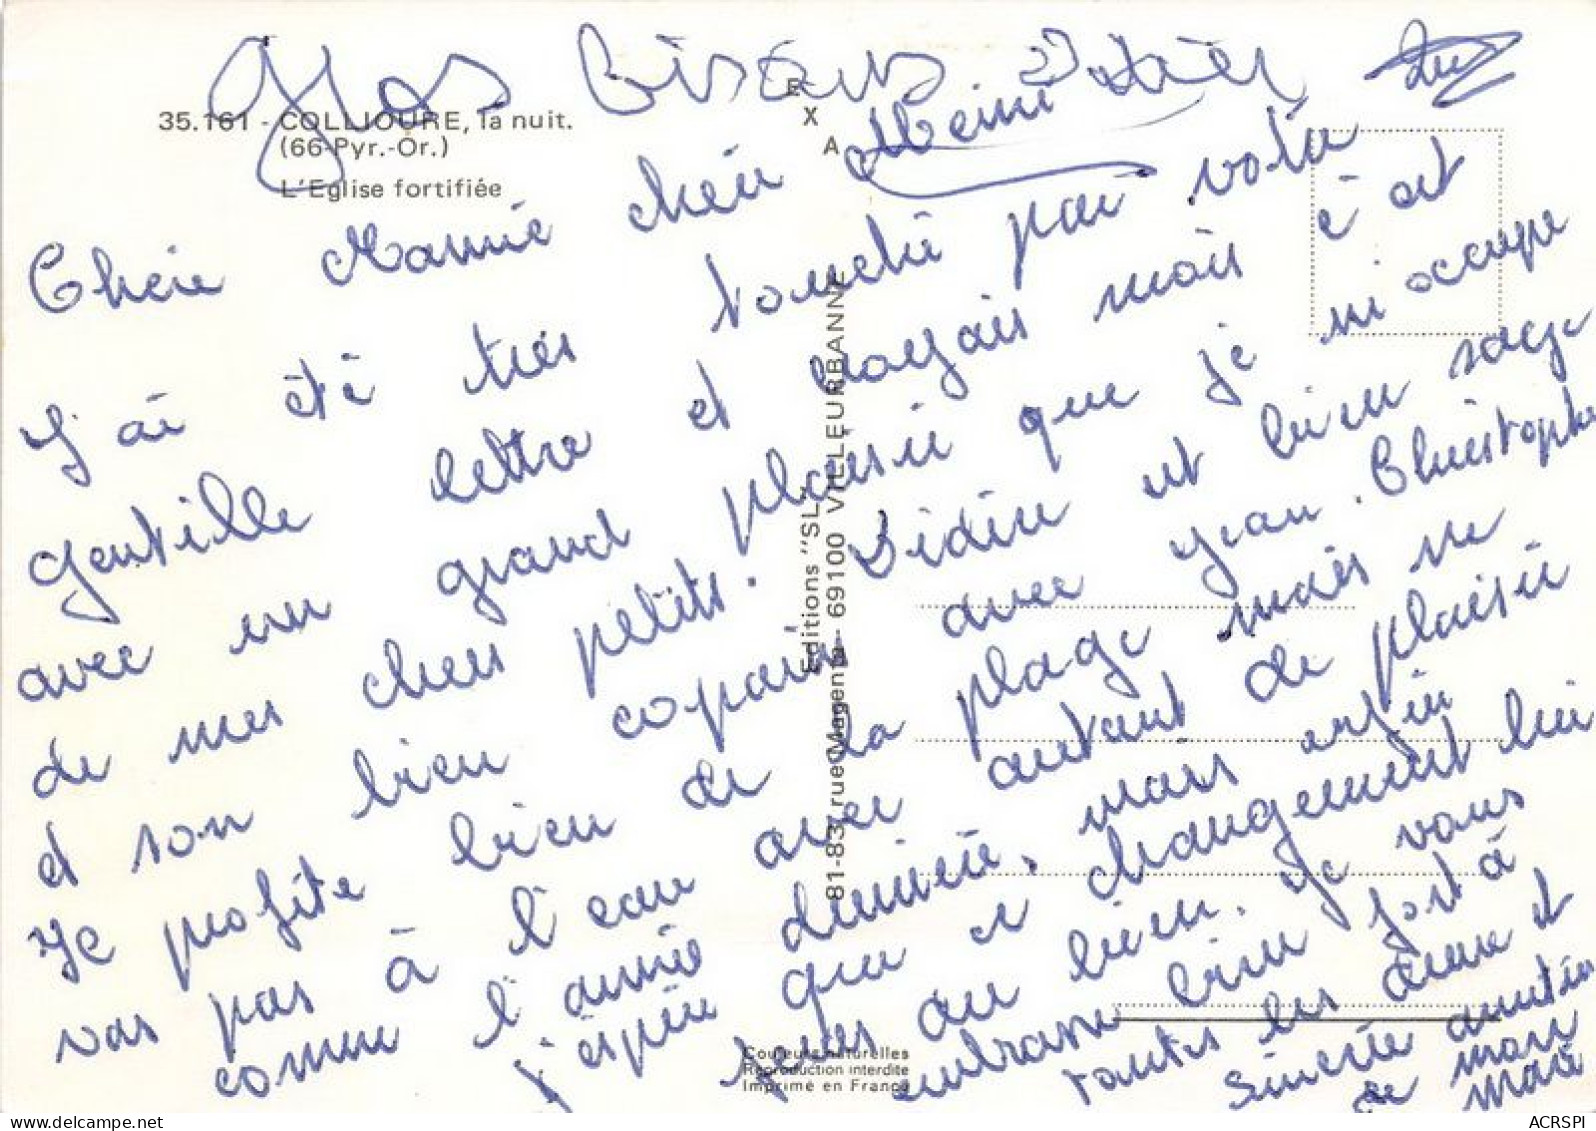 Gros Bisous Didier
35.161 - COLLIOURE, la nuit.
(66-Pyr.-Or.)
L'Eglise fortifiée
EXA
Chère Mamie cher Mémé
J'ai été très touché par votre
gentille lettre et croyais mois c'est
avec un grand plaisir que je m'occupe
de mes chers petits. Didier est bien sage
et son bien copain avec Jean. Christophe
Je profite bien de la plage mais ne
vas pas à l'eau avec autant de plaisir
comme l'année dernière, mais enfin
j'espère que ce changement lui
feras du bien. Je vous
embrasse bien fort à
toutes les deux et
Sincère amitiés
de mon
mari
Editions "SL"
81-83, rue Magenta - 69100 VILLEURBANNE
Couleurs naturelles
Reproduction interdite
Imprimé en France
ACRSPI